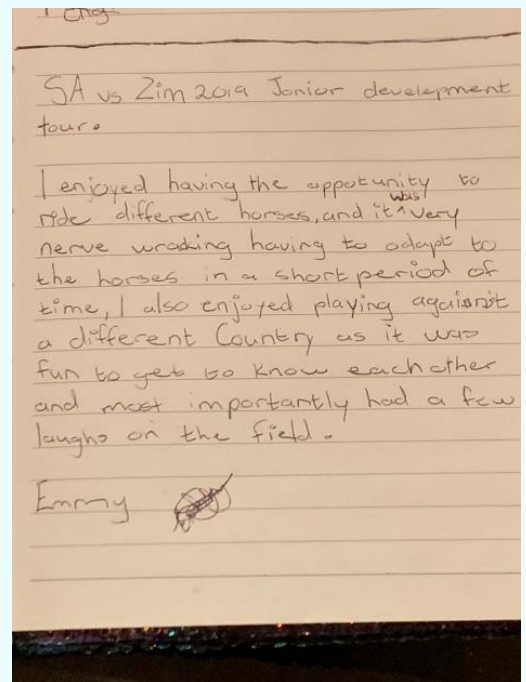 SA vs Zim 2019 Junior development
tour.
I enjoyed having the oppotunity to
ride different horses, and it was very
nerve wracking having to adapt to
the horses in a short period of
time, I also enjoyed playing against
a different Country as it was
fun to get to know eachother
and most importantly had a few
laughs on the field.
Emmy